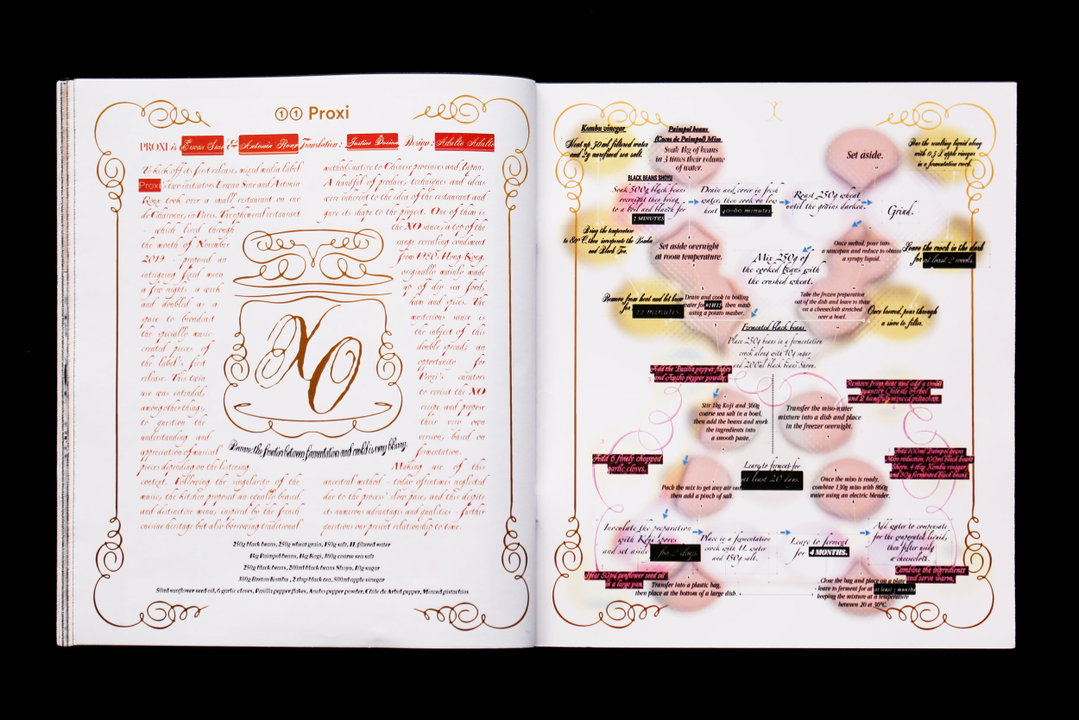 ①① Proxi
PROXI is Erwan Sene & Antonin Roux Translation : Justine Dorion Design : Adulte Adulte
To kick off its first release, mixed media label
Proxi's two initiators Erwan Sene and Antonin
Roux took over a small restaurant on rue
de Charonne, in Paris. The ephemeral restaurant
– which lived through
the month of November
2019 – proposed an
intriguing fixed menu
a few nights a week
and doubled as a
space to broadcast
the specially music
created pieces of
the label's first
release. This twin
menu was extended,
among other things,
to question the
understanding and
appreciation of musical
pieces depending on the listening
context. Following the singularity of the
music, the kitchen proposed an equally hazard
and distinctive menu, inspired by the French
cuisine heritage but also borrowing traditional
methods native to Chinese provinces and Japan.
A handful of produce, techniques and ideas
were inherent to the idea of the restaurant and
gave its shape to the project. One of them is
the XO sauce, a top of the
range revealing condiment
from 1980 Hong-Kong,
originally mainly made
up of dry sea foods,
ham and spices. The
mysterious sauce is
the object of this
double spread: an
opportunity for
Proxi's curators
to revisit the XO
recipe and propose
their very own
version, based on
fermentation.
Making use of this
ancestral method – today oftentimes neglected
due to the process' slow pace and this despite
its numerous advantages and qualities – further
questions our present relationship to time.
XO
Because the frontier between fermentation and mold is very blurry.
250g black beans, 250g wheat grain, 150g salt, 1L filtered water
1kg Paimpol beans, 1kg Koji, 360g coarse sea salt
250g black beans, 200ml black beans Shoyu, 10g sugar
100g Breton Kombu, 2 tbsp black tea, 500ml apple vinegar
50ml sunflower seed oil, 6 garlic cloves, Pasilla pepper flakes, Ancho pepper powder, Chile de Arbol pepper, Minced pistachios
Kombu vinegar
Heat up 50ml filtered water
and 2g unrefined sea salt.
Paimpol beans
(Cocos de Paimpol) Miso
Soak 1kg of beans
in 3 times their volume
of water.
Set aside.
Pour the resulting liquid along
with 0,5 l apple vinegar
in a fermentation crock.
BLACK BEANS SHOYU
Soak 500g black beans
overnight then bring
to a boil and blanch for
2 MINUTES
Drain and cover in fresh
water, then cook on low
heat 40-60 minutes
Roast 250g wheat
until the grains darken.
Grind.
Bring the temperature
to 80°C, then incorporate the Kombu
and Black Tea.
Set aside overnight
at room temperature.
Mix 250g of
the cooked beans with
the crushed wheat.
Once melted, pour into
a saucepan and reduce to obtain
a syrupy liquid.
Leave the crock in the dark
for at least 2 weeks.
Remove from heat and let brew
for 22 minutes.
Drain and cook in boiling
water for 1H15, then mash
using a potato masher.
Take the frozen preparation
out of the dish and leave to thaw
on a cheesecloth stretched
over a bowl.
Once brewed, pass through
a sieve to filter.
Fermented black beans
Place 250g beans in a fermentation
crock along with 10g sugar
and 200ml black beans Shoyu.
Add the Pasilla pepper flakes
and Ancho pepper powder.
Remove from heat and add a small
quantity Chile de Arbol
and 2 handful minced pistachios.
Stir 1kg Koji and 360g
coarse sea salt in a bowl,
then add the beans and work
the ingredients into
a smooth paste.
Transfer the miso-water
mixture into a dish and place
in the freezer overnight.
Add 6 finely chopped
garlic cloves.
Add 100ml Paimpol beans
Miso reduction, 100ml black beans
Shoyu, 4 tbsp Kombu vinegar
and 80g fermented black beans.
Leave to ferment for
at least 20 days.
Pack the mix to get any air out
then add a pinch of salt.
Once the miso is ready,
combine 130g miso with 860g
water using an electric blender.
Inoculate the preparation
with Kōji spores
and set aside for 2 days.
Place in a fermentation
crock with 1L water
and 150g salt.
Leave to ferment
for 4 MONTHS.
Add water to compensate
for the evaporated liquid,
then filter using
a cheesecloth.
Heat 50ml sunflower seed oil
in a large pan.
Transfer into a plastic bag,
then place at the bottom of a large dish.
Close the bag and place on a plate,
leave to ferment for at least 3 months
keeping the mixture at a temperature
between 20 et 30°C.
Combine the ingredients
and serve warm.